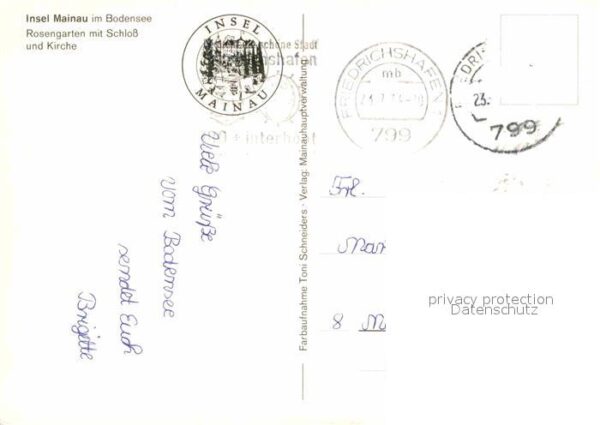 Insel Mainau im Bodensee
Rosengarten mit Schloß
und Kirche
INSEL
MAINAU
Stadt
+ interboot
FRIEDRICHSHAFEN
mb
799
23.
799
Viele Grüße
vom Bodensee
sendet Euch
Brigitte
Farbaufnahme Toni Schneiders · Verlag: Mainauhauptverwaltung
Frl.
Mar
8 M
privacy protection
Datenschutz